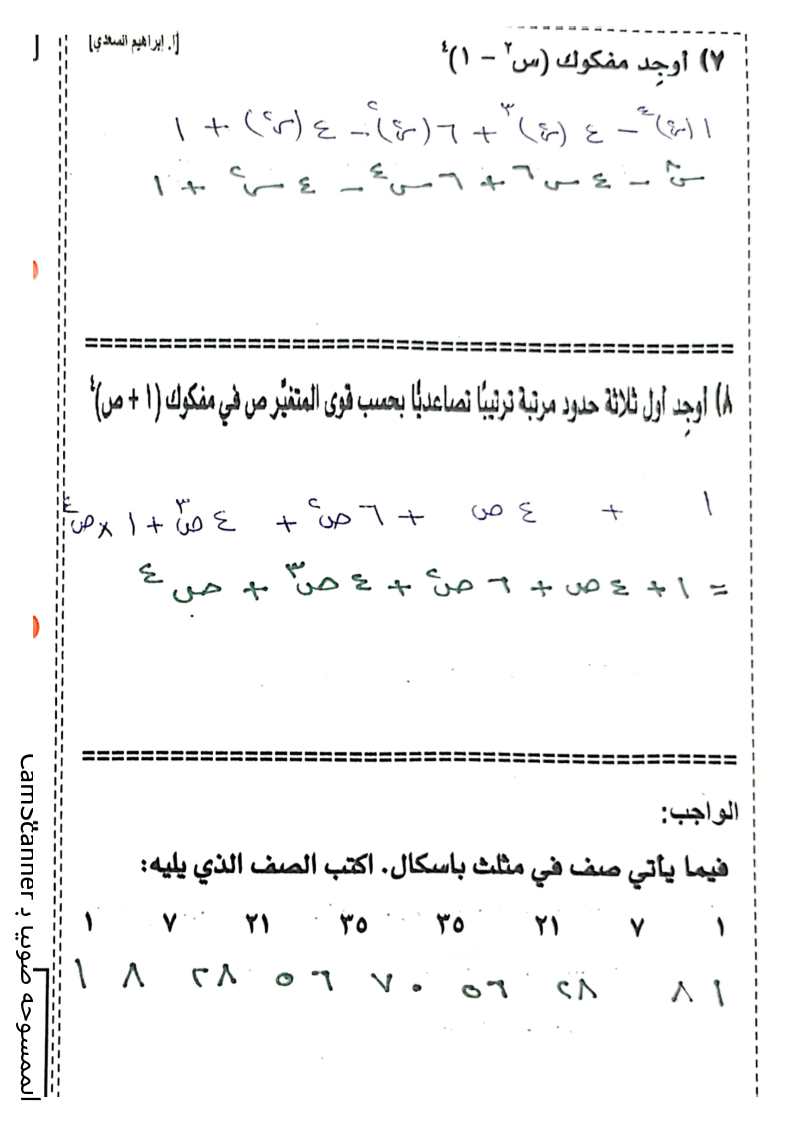 [أ. إبراهيم السعدي]
٧) أوجِد مفكوك (س² − ١)⁴
١(س²)⁴ − ٤(س²)³ + ٦(س²)² − ٤(س²) + ١
س⁸ − ٤س⁶ + ٦س⁴ − ٤س² + ١
٨) أوجِد أول ثلاثة حدود مرتبة ترتيبًا تصاعديًّا بحسب قوى المتغيِّر ص في مفكوك (١ + ص)⁴
١ + ٤ص + ٦ص² + ٤ص³ + ١×ص⁴
= ١ + ٤ص + ٦ص² + ٤ص³ + ص⁴
الواجب:
فيما يأتي صف في مثلث باسكال. اكتب الصف الذي يليه:
١ ٧ ٢١ ٣٥ ٣٥ ٢١ ٧ ١
١ ٨ ٢٨ ٥٦ ٧٠ ٥٦ ٢٨ ٨ ١
الممسوحة ضوئيا بـ CamScanner